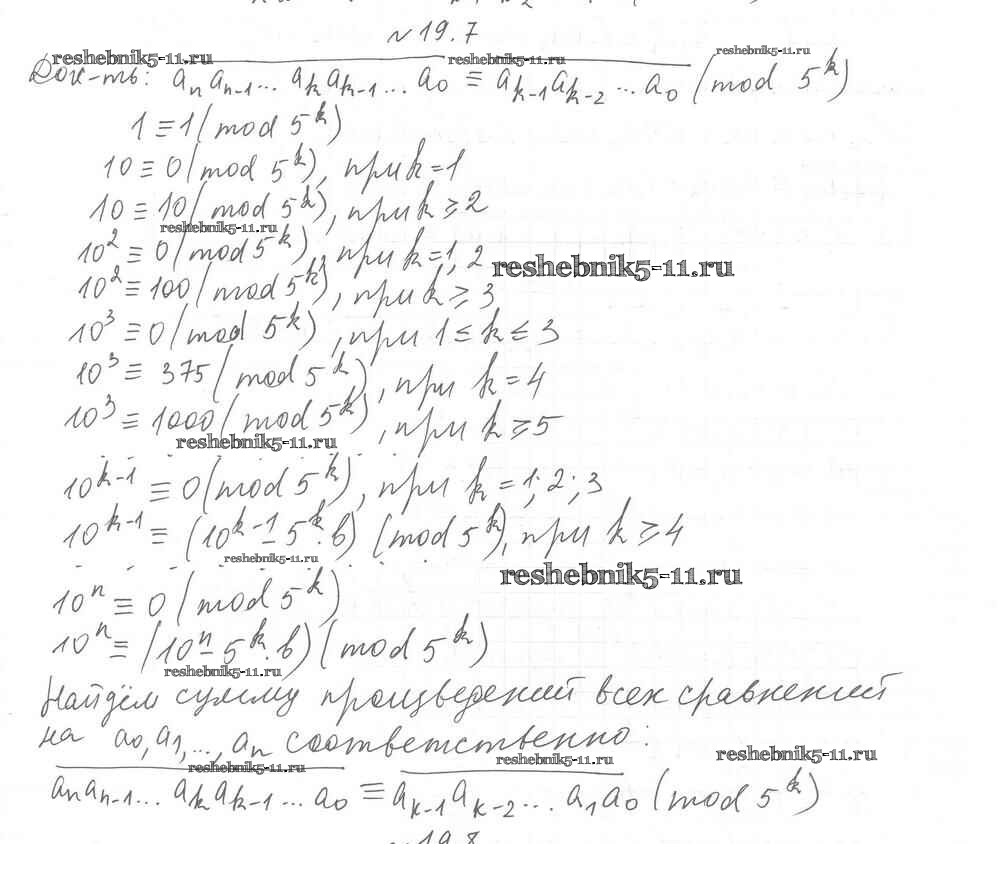 № 19.7
reshebnik5-11.ru reshebnik5-11.ru reshebnik5-11.ru
Док-ть: aₙaₙ₋₁... aₖaₖ₋₁... a₀ ≡ aₖ₋₁aₖ₋₂ ... a₀ (mod 5ᵏ)
1 ≡ 1 (mod 5ᵏ)
10 ≡ 0 (mod 5ᵏ), при k = 1
10 ≡ 10 (mod 5ᵏ), при k ≥ 2
reshebnik5-11.ru
10² ≡ 0 (mod 5ᵏ), при k = 1, 2
reshebnik5-11.ru
10² ≡ 100 (mod 5ᵏ), при k ≥ 3
10³ ≡ 0 (mod 5ᵏ), при 1 ≤ k ≤ 3
10³ ≡ 375 (mod 5ᵏ), при k = 4
10³ ≡ 1000 (mod 5ᵏ), при k ≥ 5
reshebnik5-11.ru
10ᵏ⁻¹ ≡ 0 (mod 5ᵏ), при k = 1; 2; 3
10ᵏ⁻¹ ≡ (10ᵏ⁻¹ - 5ᵏ·b) (mod 5ᵏ), при k ≥ 4
reshebnik5-11.ru
reshebnik5-11.ru
10ⁿ ≡ 0 (mod 5ᵏ)
10ⁿ ≡ (10ⁿ - 5ᵏ·b) (mod 5ᵏ)
reshebnik5-11.ru
Найдём сумму произведений всех сравнений
на a₀, a₁, ..., aₙ соответственно:
reshebnik5-11.ru reshebnik5-11.ru reshebnik5-11.ru
aₙaₙ₋₁... aₖaₖ₋₁... a₀ ≡ aₖ₋₁aₖ₋₂ ... a₁a₀ (mod 5ᵏ)